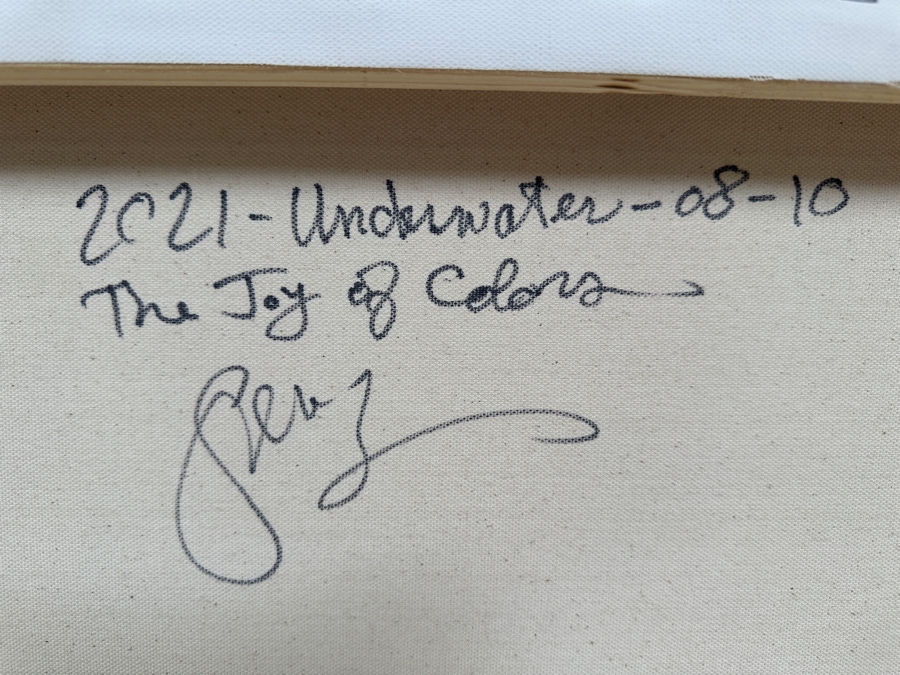 2021-Underwater-08-10
The Joy of Colors